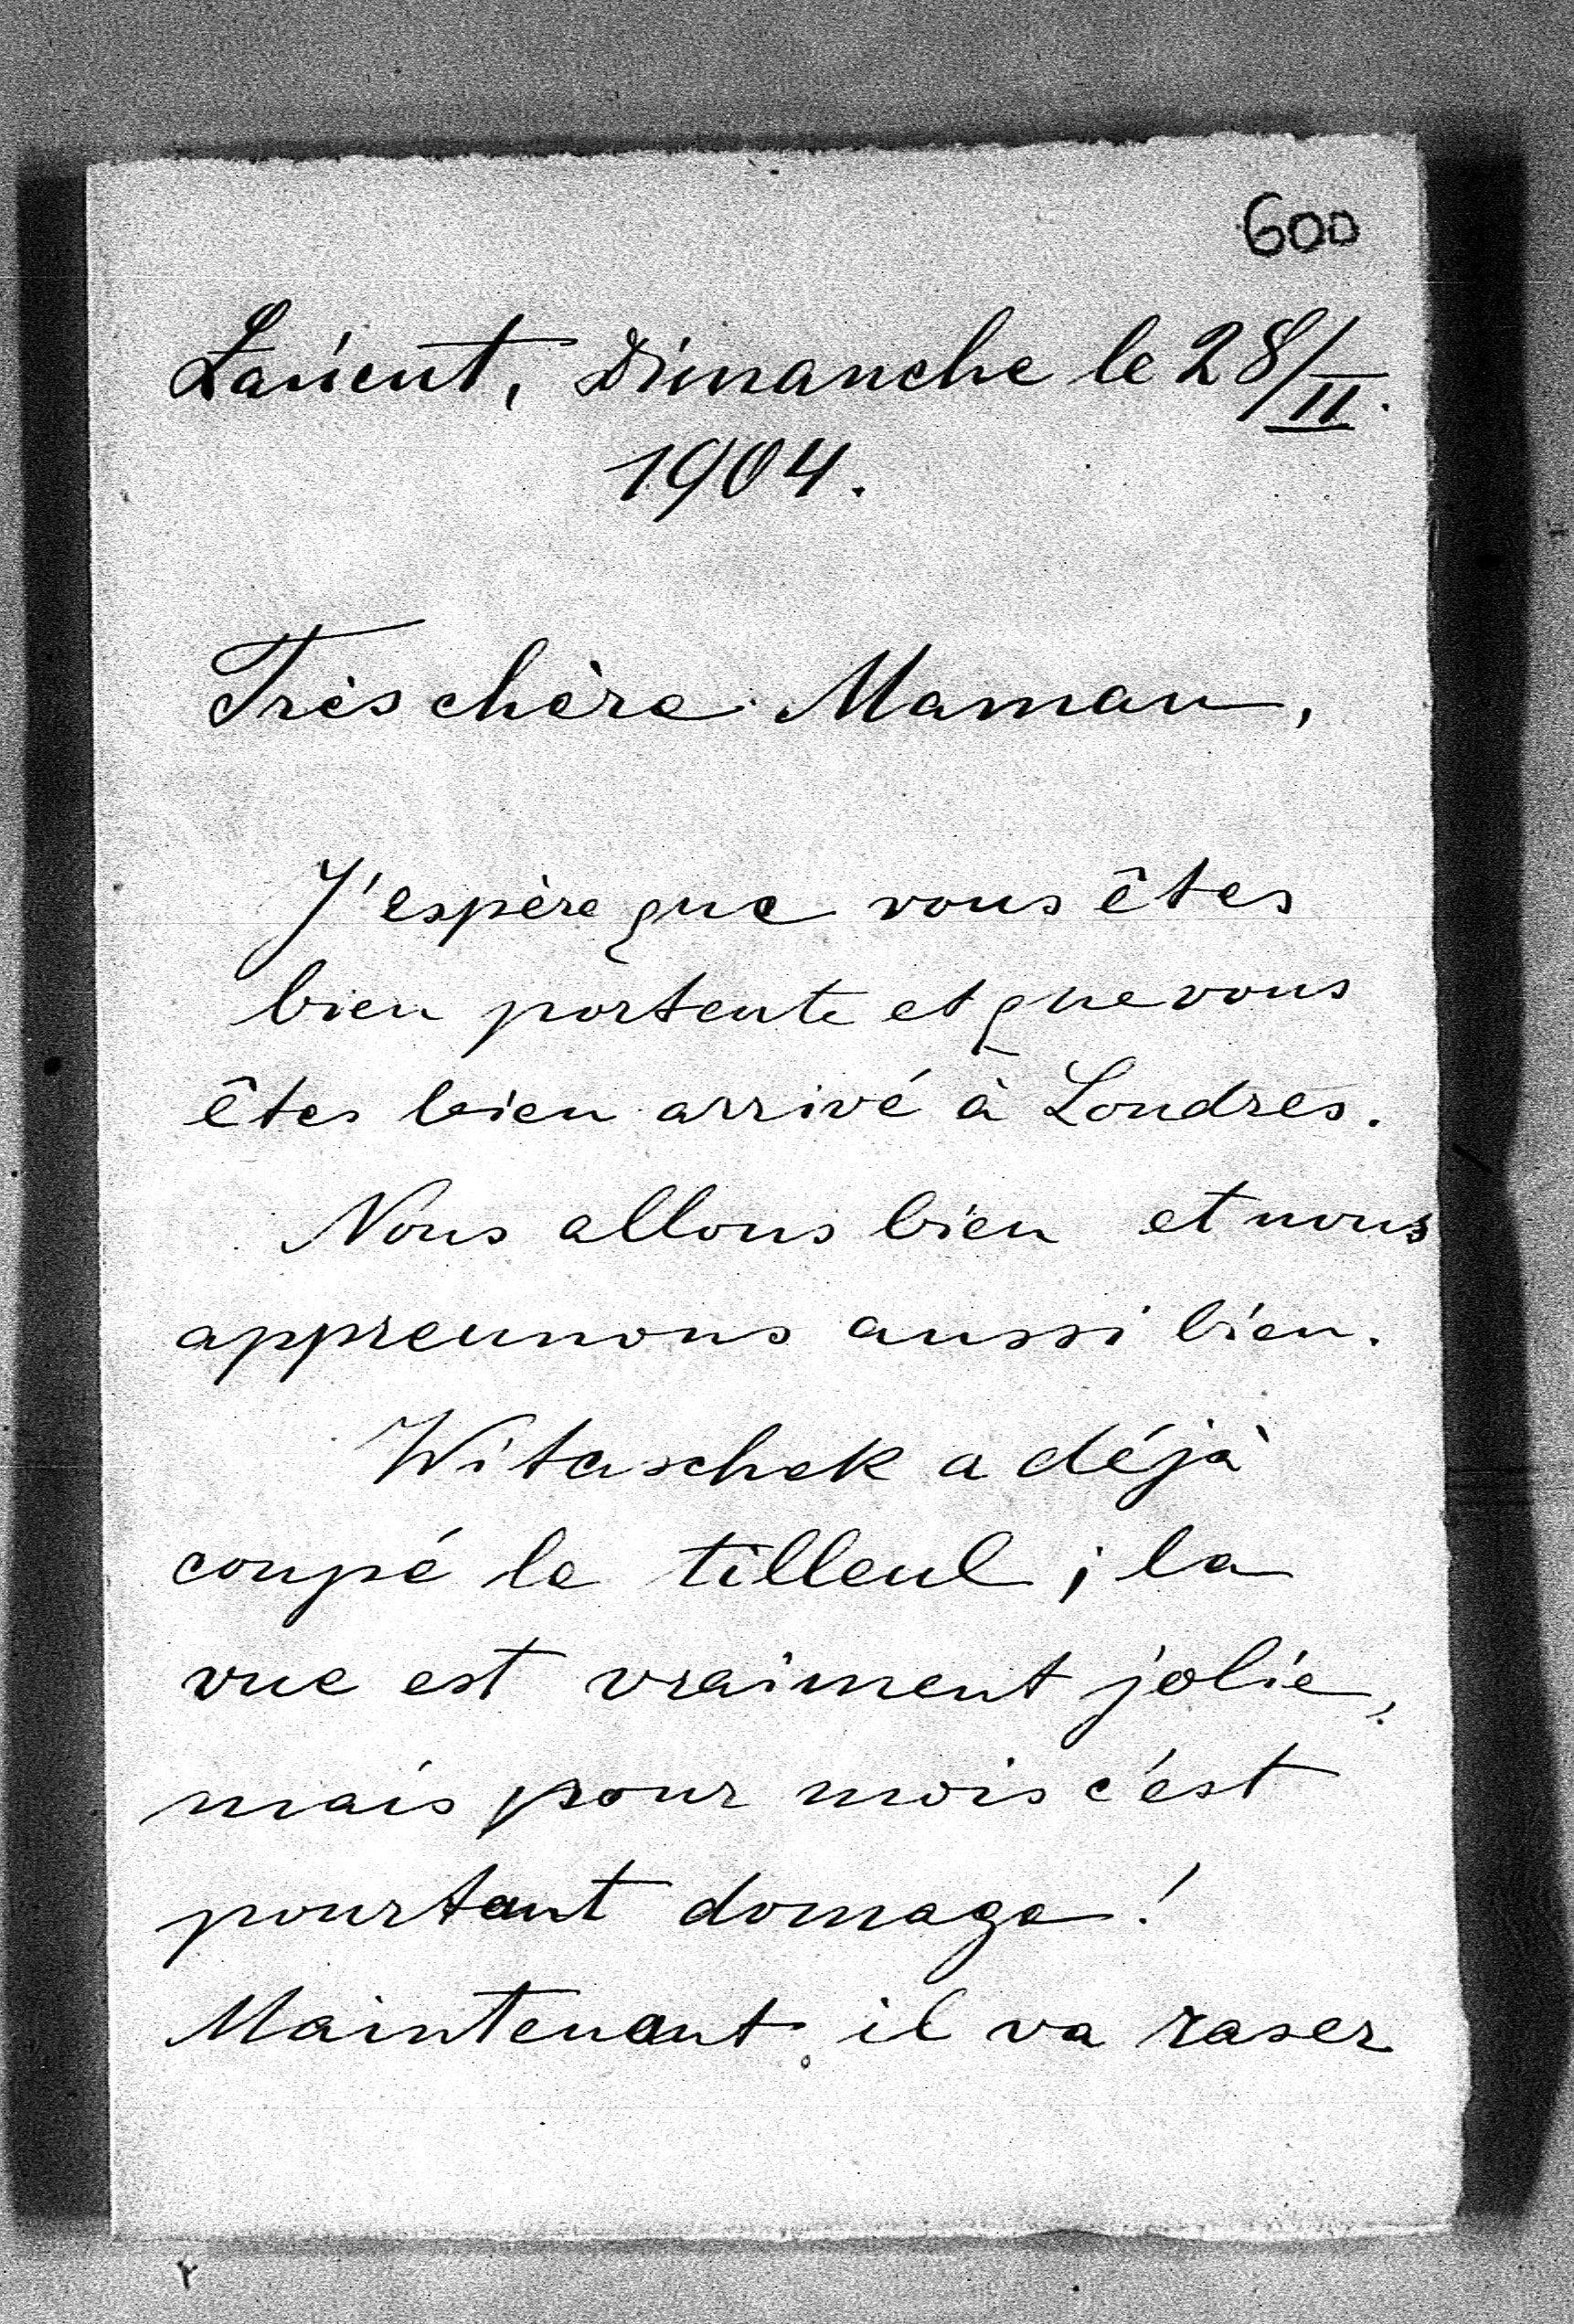 600
Lanient, Dimanche le 28/II.
1904.
Très chère Maman,
J'espère que vous êtes
bien portente et que vous
êtes bien arrivé à Londres.
Nous allons bien et nous
apprennons aussi bien.
Witaschek a déjà
coupé le tilleul; la
vue est vraiment jolie,
mais pour mois c'est
pourtant domage!
Maintenant il va raser